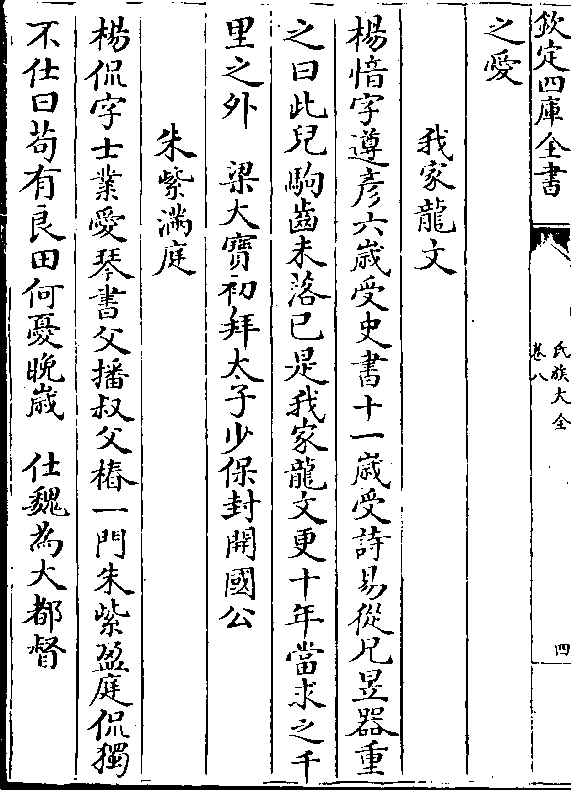 欽定四庫全書
氏族大全
卷八
四
之愛
我家龍文
楊愔字遵彥六歲受史書十一歲受詩易從兄昱器重
之曰此兒駒齒未落已是我家龍文更十年當求之千
里之外　梁大寶初拜太子少保封開國公
朱紫滿庭
楊侃字士業愛琴書父播叔父椿一門朱紫盈庭侃獨
不仕曰苟有良田何憂晚歲　仕魏為大都督